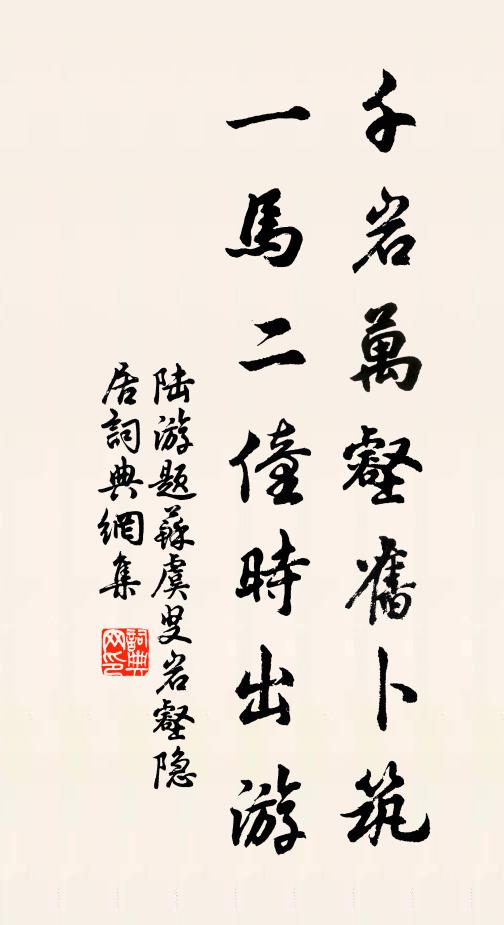 千岩萬壑舊卜筑
一馬二僮時出游
陆游題蘇虞叟岩壑隐
居詞典網集
詞典
网印